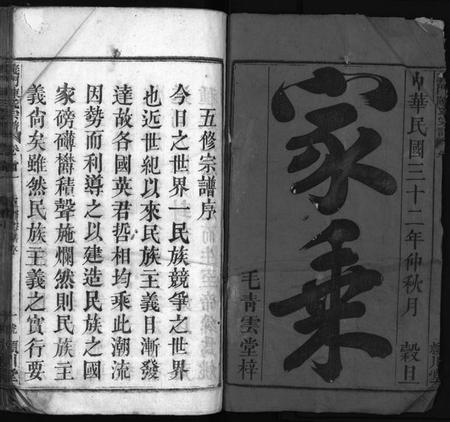 中華民國三十二年仲秋月 穀旦
家乘
毛青雲堂梓
五修宗譜序
今日之世界一民族競爭之世界
也近世紀以來民族主義日漸發
達故各國英君哲相均乘此潮流
因勢而利導之以建造民族之國
家磅礴欝積聲施爛然則民族主
義尙矣雖然民族主義之實行要
潁川堂